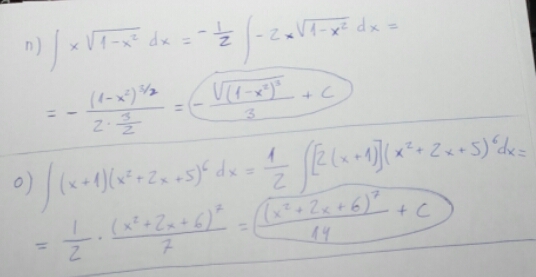 n) ∫ x √(1-x²) dx = -1/2 ∫ -2x √(1-x²) dx =
= - (1-x²)^(3/2) / (2 · 3/2) = - √((1-x²)³) / 3 + C
o) ∫ (x+1)(x²+2x+5)⁶ dx = 1/2 ∫ [2(x+1)](x²+2x+5)⁶ dx =
= 1/2 · (x²+2x+6)⁷ / 7 = (x²+2x+6)⁷ / 14 + C